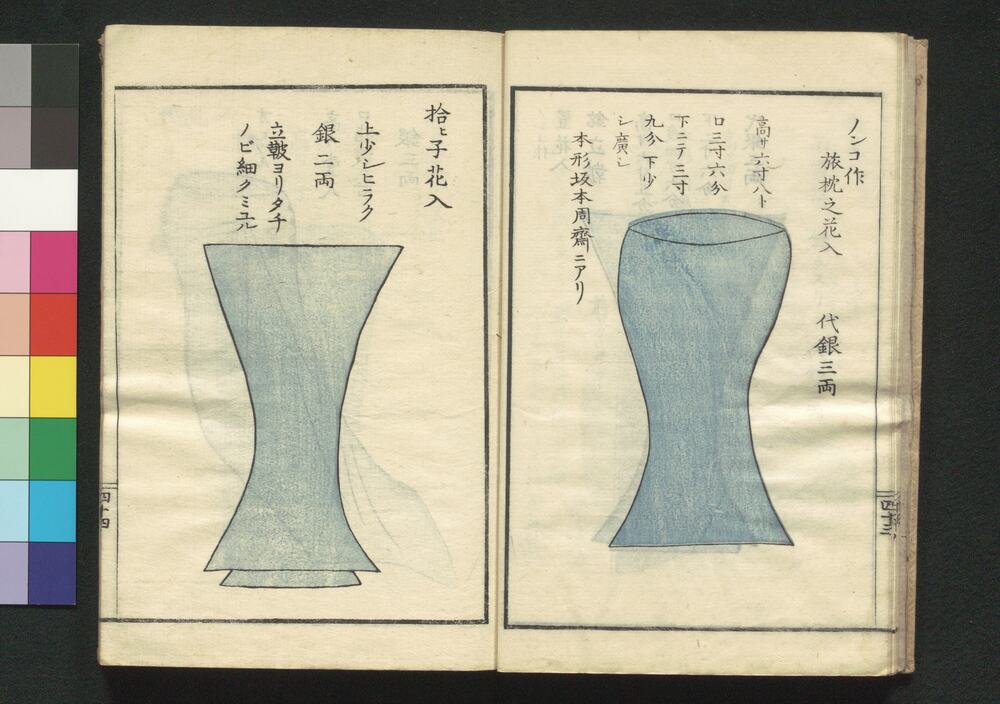 ノンコ作
旅枕之花入　代銀三両
高サ六寸八ト
口三寸六分
下ニテ三寸
九分 下少
シ廣シ
本形坂本周齋ニアリ
四十三
拾ヒ子花入
上少シヒラク
銀二両
立皺ヨリタチ
ノビ細クミユル
四十四